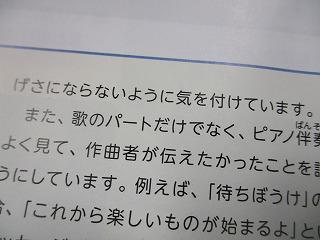 げさにならないように気を付けています。
また、歌のパートだけでなく、ピアノ伴奏
よく見て、作曲者が伝えたかったことを
うにしています。例えば、「待ちぼうけ」の
「これから楽しいものが始まるよ」とい